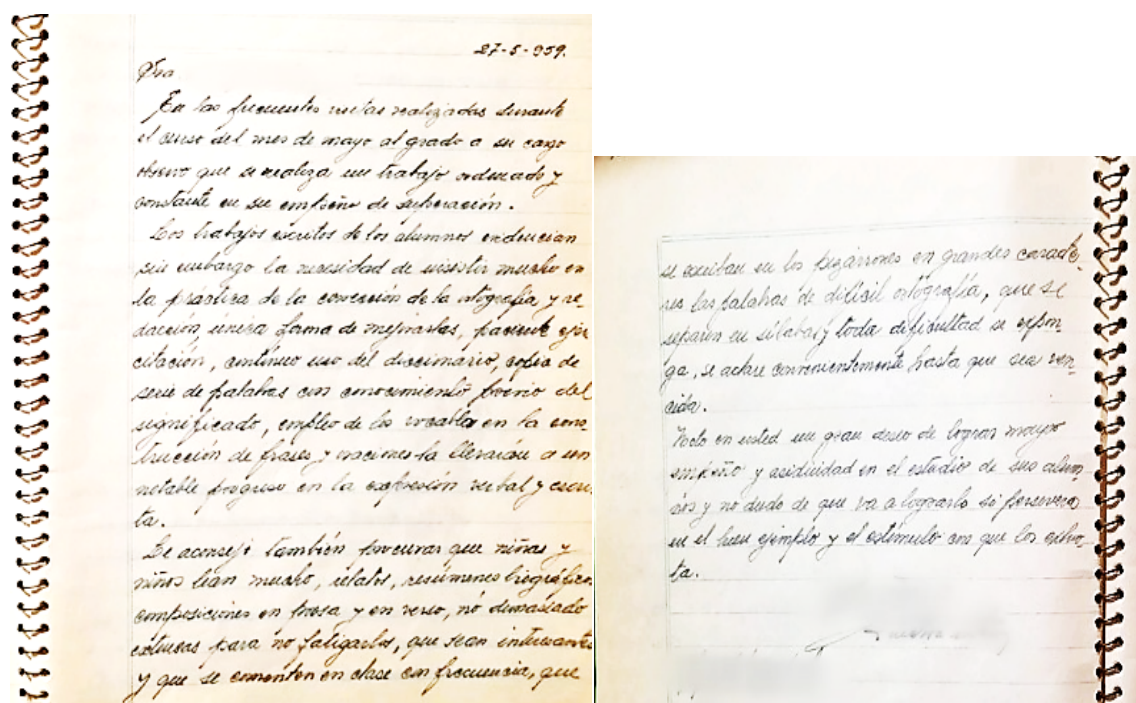 27-5-959.
Sra
En las frecuentes visitas realizadas durante
el curso del mes de mayo al grado a su cargo
observo que se realiza un trabajo ordenado y
constante en su empeño de superación.
Los trabajos escritos de los alumnos evidencian
sin embargo la necesidad de insistir mucho en
la práctica de la corrección de la ortografía y re-
dacción, única forma de mejorarlas, paciente ejer
citación, continuo uso del diccionario, copia de
serie de palabras con conocimiento previo del
significado, empleo de los vocablos en la cons-
trucción de frases y oraciones la llevarían a un
notable progreso en la expresión verbal y escri-
ta.
Le aconsejo también procurar que niñas y
niños lean mucho, relatos, resúmenes biográficos
composiciones en prosa y en verso, no demasiado
extensas para no fatigarlos, que sean interesantes
y que se comenten en clase con frecuencia, que
se escriban en los pizarrones en grandes caracte-
res las palabras de difícil ortografía, que se
separen en sílabas y toda dificultad se expon-
ga, se aclare convenientemente hasta que sea ven-
cida.
Noto en usted un gran deseo de lograr mayor
empeño y asiduidad en el estudio de sus alum-
nos y no dudo de que va a lograrlo si persevera
en el buen ejemplo y el estímulo con que los exhor
ta.